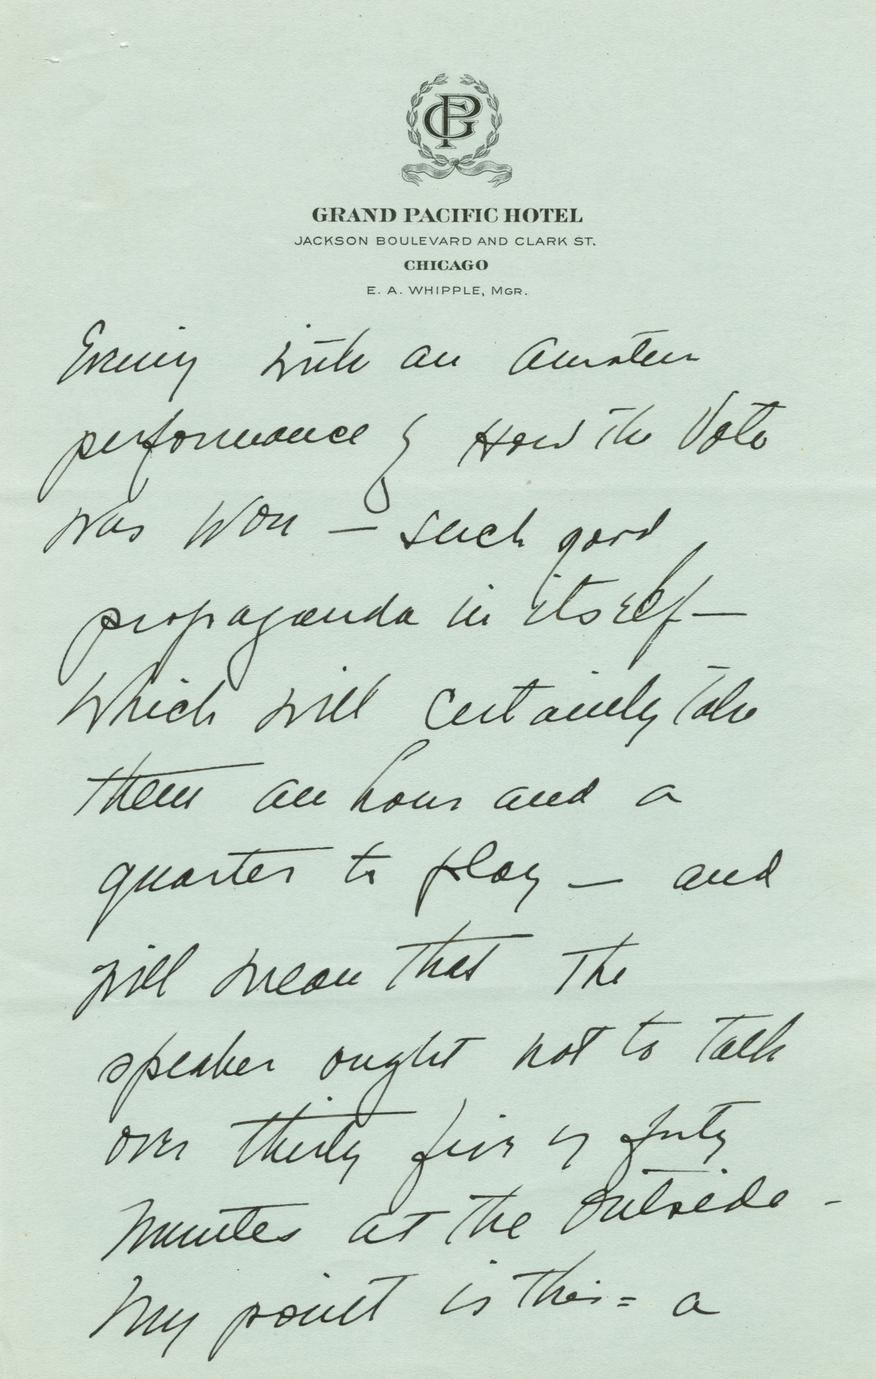 GP
GRAND PACIFIC HOTEL
JACKSON BOULEVARD AND CLARK ST.
CHICAGO
E. A. WHIPPLE, MGR.
Evening with an amateur
performance of How the Vote
was Won — such good
propaganda in itself —
which will certainly take
them an hour and a
quarter to play — and
will mean that the
speaker ought not to talk
over thirty five or forty
minutes at the outside -
My point is this = a